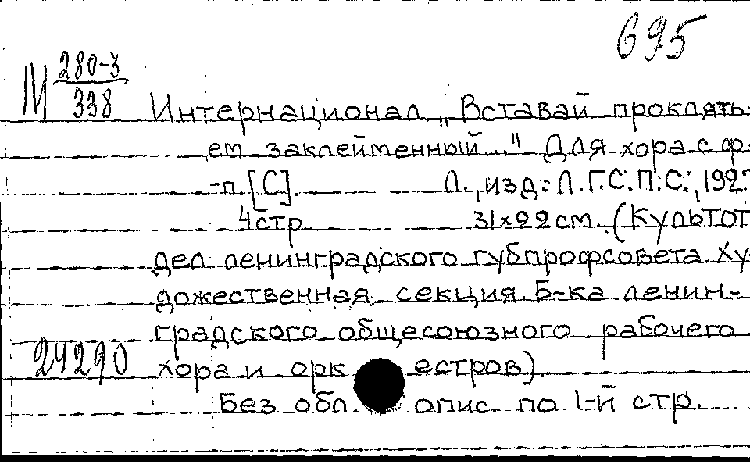 695
М 280-3
338
Интернационал „Вставай проклять-
ем заклейменный..." Для хора с ф-
-п. [С]. Л., изд. Л.Г.С.П.С., 192
4 стр. 31×22 см. (Культот
дел ленинградского губпрофсовета. Ху
дожественная секция. Б-ка ленин-
градского общесоюзного рабочего
24290 хора и оркестров)
Без обл. опис. по 1-й стр.